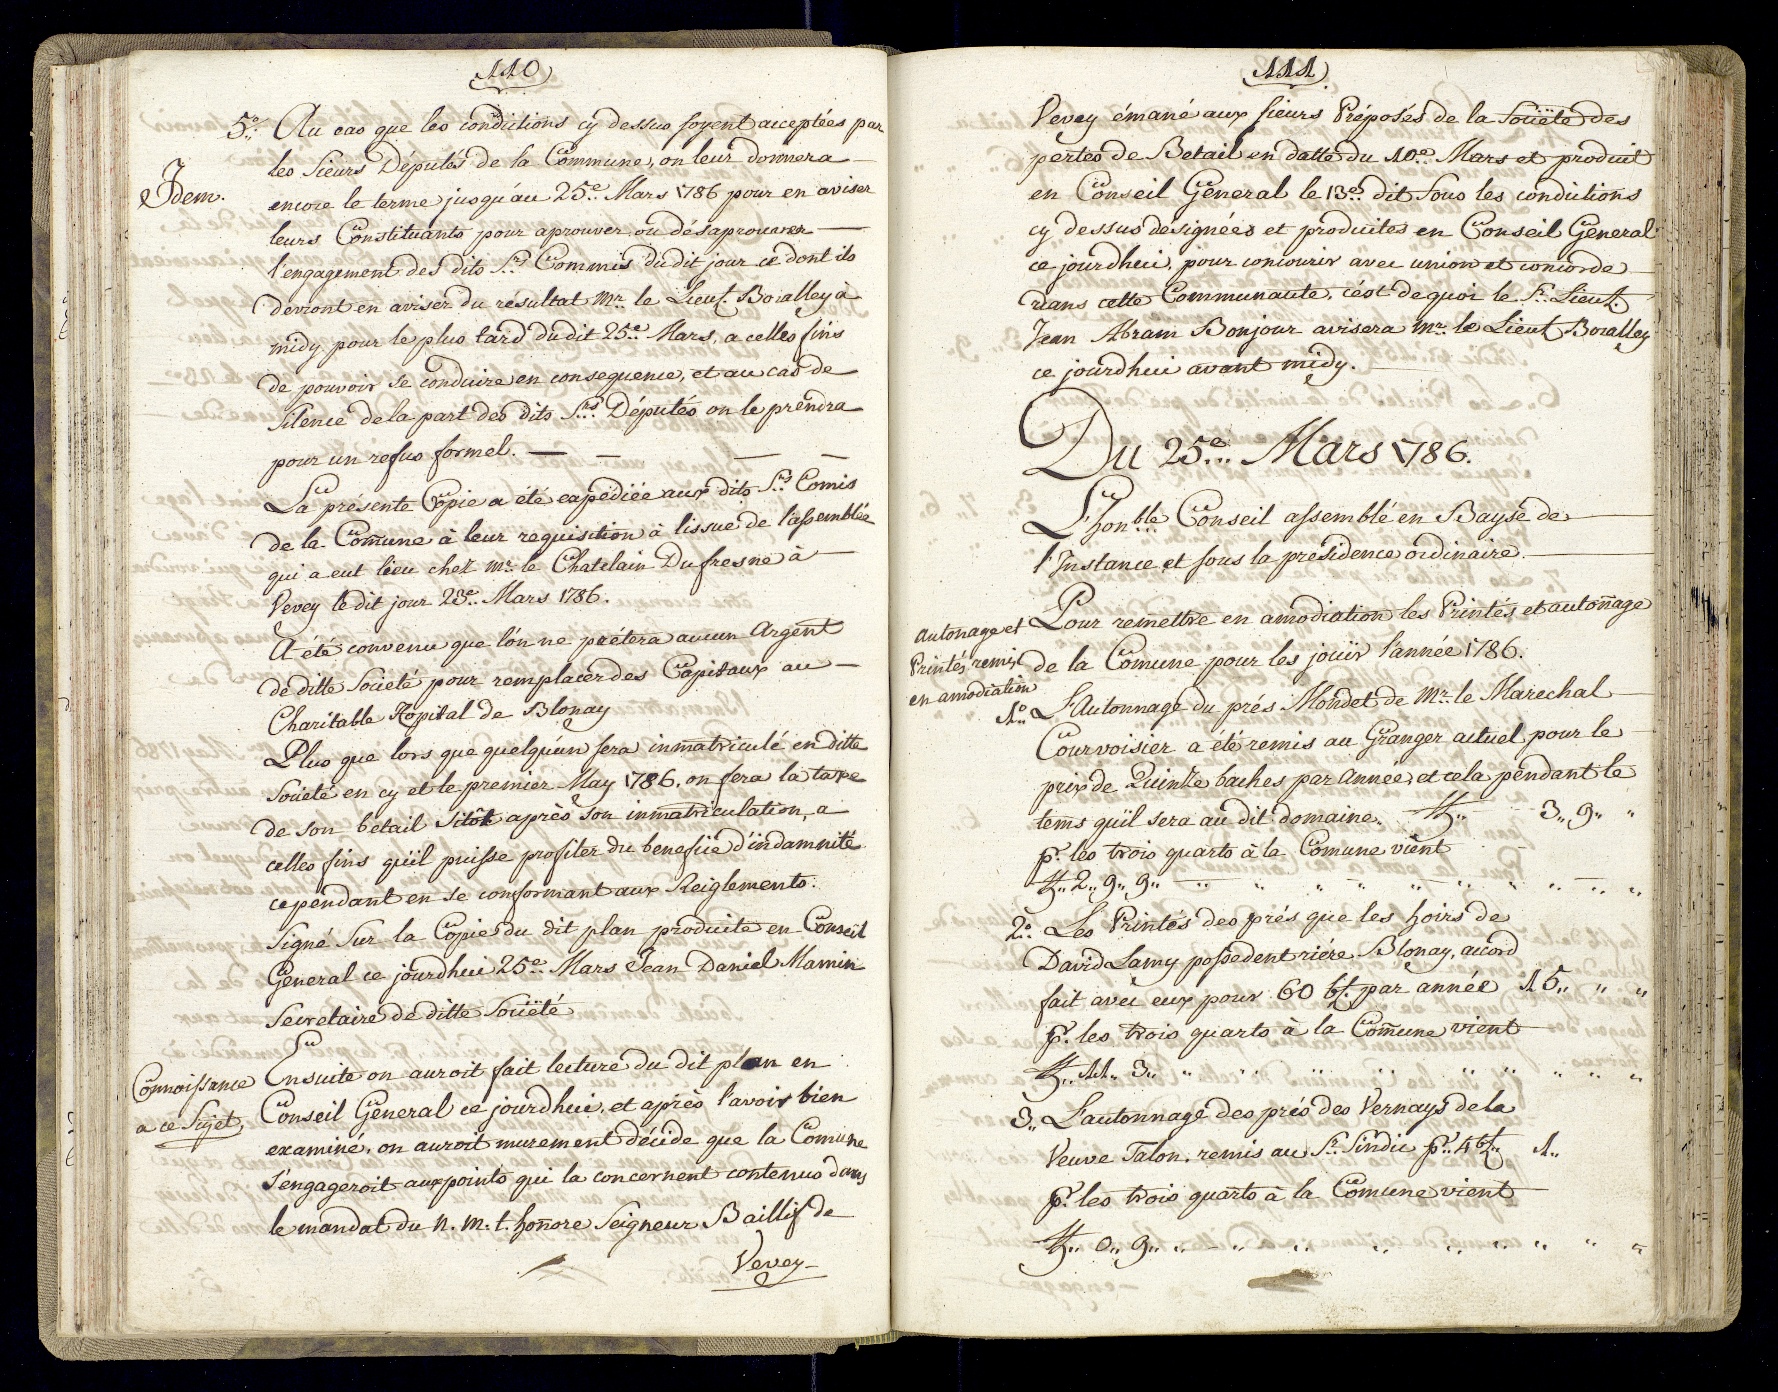 110
5.° Au cas que les conditions cy dessus soyent acceptées par
les Sieurs Députés de la Commune, on leur donnera
Idem.
encore le terme jusqu'au 25.e Mars 1786 pour en aviser
leurs Constituants pour aprouver ou désaprouver
l'engagement des dits S.rs Commis du dit jour ce dont ils
devront en aviser du résultat Mr. le Lieut. Boralley à
midy pour le plus tard du dit 25.e Mars, a celles fins
de pouvoir se conduire en consequence, et au cas de
Silence de la part des dits S.rs Députés on le prendra
pour un refus formel.
La présente Copie a été expediée aux dits S.rs Comis
de la Comune à leur requisition à lissue de l'assemblée
qui a eut lieu chez Mr. le Chatelain Dufresne à
Vevey le dit jour 23.e Mars 1786.
A été convenu que l'on ne prétera aucun Argent
de ditte Societé pour remplacer des Capitaux au
Charitable Hopital de Blonay
Plus que lors que quelqu'un sera inmatriculé en ditte
Societé en cy et le premier May 1786. on fera la taxe
de son betail sitôt après son inmatriculation, a
celles fins qu'il puisse profiter du benefice d'indamnité
cependant en se conformant aux Reiglements.
Signé Sur la Copie du dit plan produite en Conseil
General ce jourdhui 25.e Mars Jean Daniel Mamin
Secretaire de ditte Societé
Connoissance
a ce Sujet,
Ensuite on auroit fait lecture du dit plan en
Conseil General ce jourdhui, et après l'avoir bien
examiné, on auroit murement décide que la Comune
s'engageroit aux points qui la concernent contenus dans
le mandat du n. m. t. honore Seigneur Baillif de
Vevey
111
Vevey émané aux sieurs Préposés de la Societé des
pertes de Betail en datte du 10.e Mars et produit
en Conseil General le 13.e dit sous les conditions
cy dessus désignées et produites en Conseil General
ce jourdhui, pour concourir avec union et concorde
dans cette Communaute, c'est dequoi le S.r Lieut.
Jean Abram Bonjour avisera Mr. le Lieut Boralley
ce jourdhui avant midy.
Du 25.e Mars 1786.
L'honble Conseil assemblé en Baysé de
l'Instance et sous la presidence ordinaire.
Autonage et
Printés remis
en amodiation
Pour remettre en amodiation les Printés et autonnage
de la Comune pour les jouir l'année 1786.
1.° L'Autonnage du prés Mondet de Mr. le Marechal
Courvoisier a été remis au Granger actuel pour le
prix de Quinze baches par Année, et cela pendant le
tems qu'il sera au dit domaine. 3,, 9,, ,,
p.r les trois quarts à la Comune vient
2,, 9,, 9,,
2.° Les Printés des prés que les hoirs de
David Lamy possedent riére Blonay, acord
fait avec eux pour 60 bz. par année 15,, ,, ,,
p.r les trois quarts à la Comune vient
11,, 3,, ,,
3,, L'autonnage des prés des Vernays de la
Veuve Talon, remis au S.r Sindic p.r 4 bz. 1,,
p.r les trois quarts à la Comune vient
0,, 9,, ,,